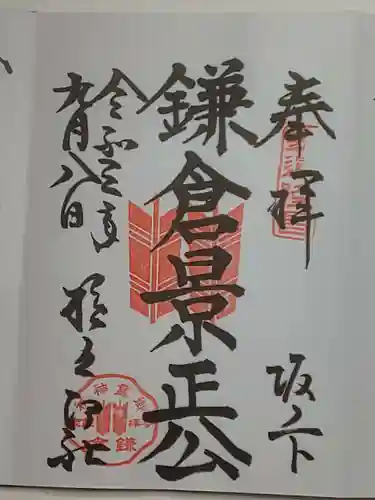 奉拝
坂ノ下
鎌倉景正公
令和元年
九月八日
御霊神社